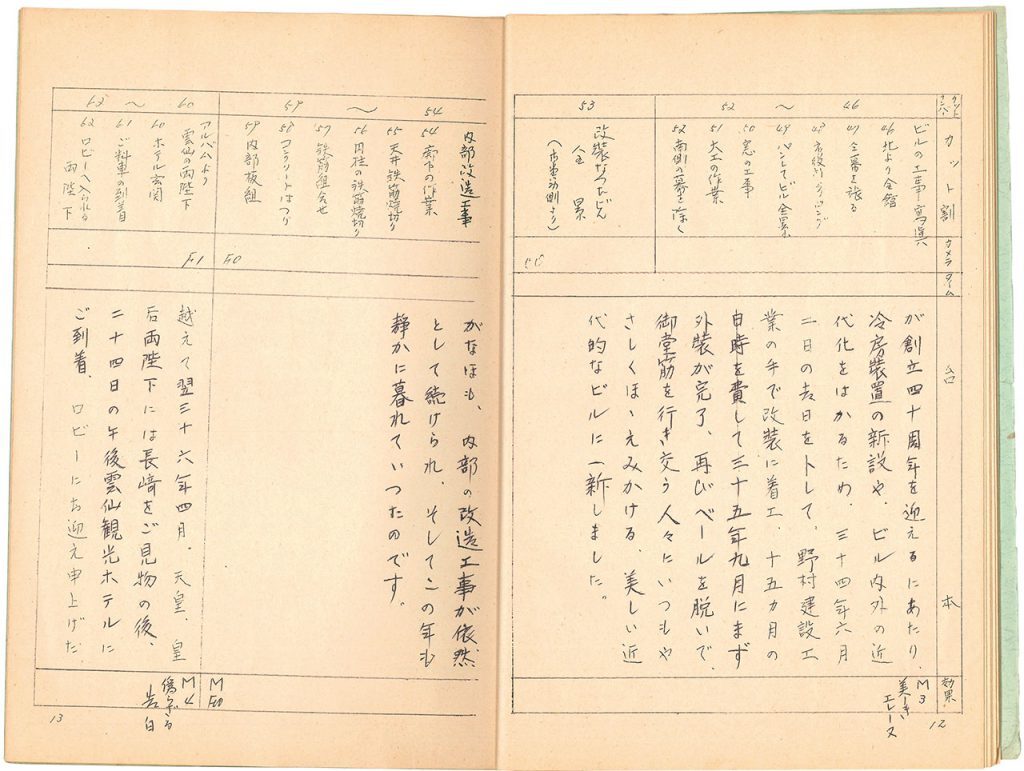 カット割
カメラ
タイム
台本
効果
46 〜 52
ビルの工事
46 北より会館
47 全幕を張る
49 パンしてビル全景
50 窓の工事
51 大工の作業
52 南側の幕を除く
53
改装なったビル
全景
が創立四十周年を迎えるにあたり、
冷房装置の新設や、ビル内外の近
代化をはかるため、三十四年六月
二日の吉日をトして、野村建設工
業の手で改装に着工、十五ヵ月の
日時を費して三十五年九月にまず
外装が完了、再びベールを脱いで、
御堂筋を行き交う人々にいつもや
さしくほゝえみかける、美しい近
代的なビルに一新しました。
M3
美しき
エレーヌ
12
54 〜 59
内部改造工事
54 廊下の作業
55 天井鉄筋焼切り
56 円柱の鉄筋焼切り
57 鉄筋組合せ
58 コンクリートはつり
59 内部板組
F0
かなほも、内部の改造工事が依然
として続けられ、そしてこの年も
静かに暮れていつたのです。
M
F0
60 〜 62
アルバムより
雲仙の両陛下
60 ホテル玄関
61 ご料車の到着
62 ロビーへ入られる
両陛下
F1
越えて翌三十六年四月、天皇、皇
后両陛下には長崎をご見物の後、
二十四日の午後雲仙観光ホテルに
ご到着、ロビーにお迎え申上げた
M4
告白
13